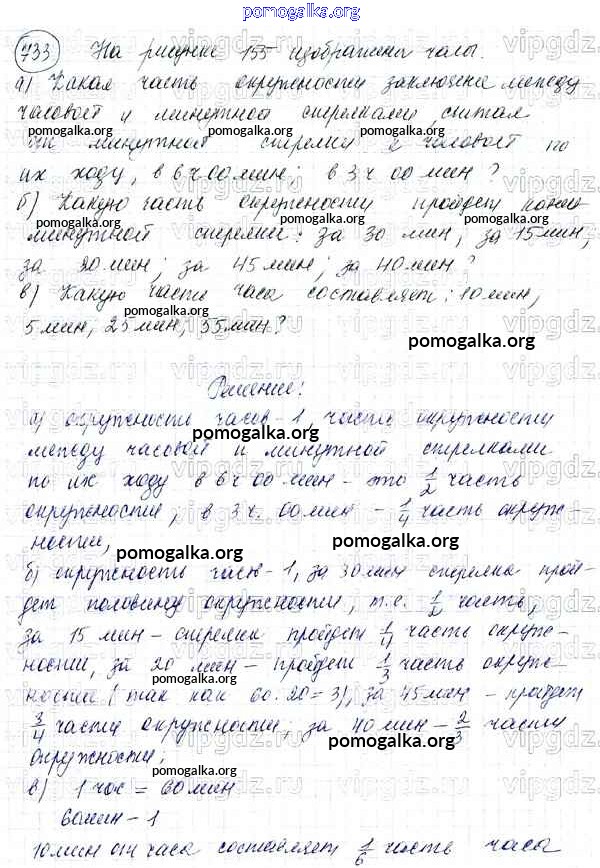 pomogalka.org
733 На рисунке 155 изображены часы.
а) Какая часть окружности заключена между
часовой и минутной стрелками, считая
pomogalka.org pomogalka.org pomogalka.org
от минутной стрелки к часовой по
их ходу, в 6 ч 00 мин; в 3 ч 00 мин?
б) Какую часть окружности пройдет конец
pomogalka.org pomogalka.org pomogalka.org
минутной стрелки: за 30 мин, за 15 мин,
за 20 мин; за 45 мин; за 40 мин?
в) Какую часть часа составляет: 10 мин,
5 мин, 25 мин, 55 мин?
pomogalka.org
pomogalka.org
Решение:
а) окружность часов - 1, часть окружности
pomogalka.org
между часовой и минутной стрелками
по их ходу в 6 ч 00 мин - это 1/2 часть
окружности, в 3 ч. 00 мин - 1/4 часть окруж-
ности,
pomogalka.org
б) окружность часов - 1, за 30 мин стрелка прой-
дет половину окружности, т.е. 1/2 часть,
за 15 мин - стрелка пройдет 1/4 часть окруж-
ности, за 20 мин - пройдет 1/3 часть окруж-
pomogalka.org pomogalka.org pomogalka.org
ности (так как 60:20=3), за 45 мин - пройдет
3/4 части окружности; за 40 мин - 2/3 части
pomogalka.org
окружности;
в) 1 час = 60 мин
60 мин - 1
10 мин от часа составляет 1/6 часть часа
pomogalka.org pomogalka.org
vipgdz.